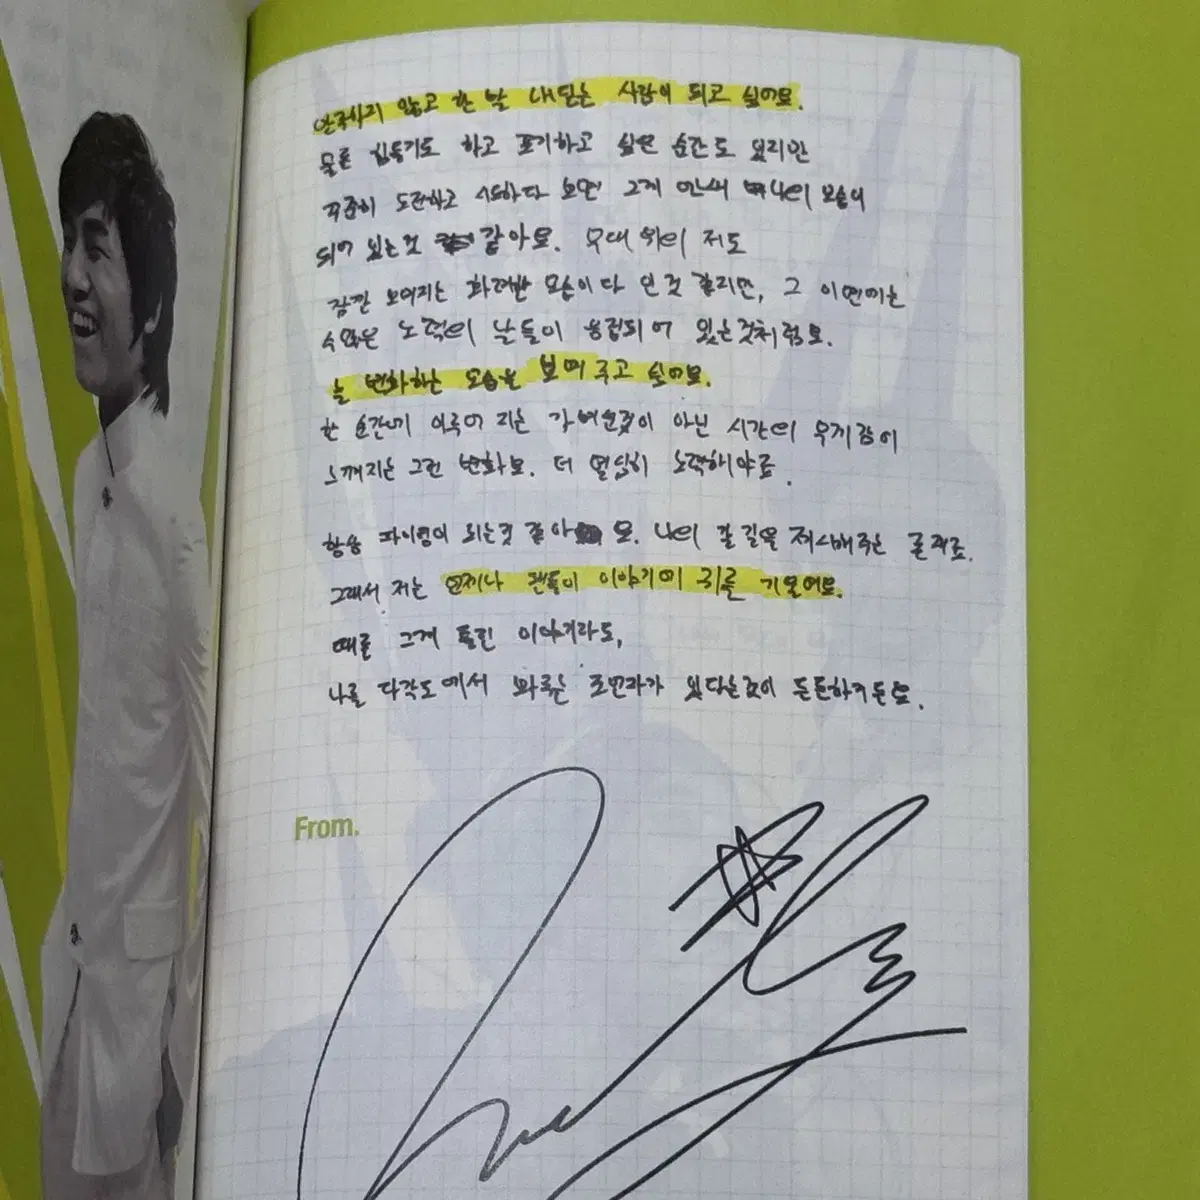 안주하지 않고 한 발 내딛는 사람이 되고 싶어요.
물론 힘들기도 하고 포기하고 싶은 순간도 있지만
꾸준히 도전하고 시도하다 보면 그게 나의 모습이
되어 있는것 같아요. 무대 위의 저도
잠깐 보여지는 화려한 모습이 다 인것 같지만, 그 이면에는
수많은 노력의 날들이 응집되어 있는것처럼요.
늘 변화하는 모습을 보여주고 싶어요.
한 순간에 이루어 지는 가벼운것이 아닌 시간의 무게감이
느껴지는 그런 변화요. 더 열심히 노력해야죠.
항상 파이팅이 되는것 같아요. 나의 갈 길을 제시해주는 존재죠.
그래서 저는 언제나 팬들의 이야기에 귀를 기울여요.
때론 그게 틀린 이야기라도,
나를 다각도에서 봐주는 조언자가 있다는것이 든든하거든요.
From.